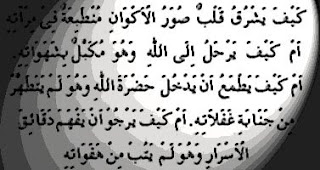 كَيْفَ يَشْرُقُ قَلْبٌ صُوَرُ الْأَكْوَانِ مُنْطَبِعَةٌ فِي مِرْآتِهِ
أَمْ كَيْفَ يَرْحَلُ إِلَى اللّٰهِ وَهُوَ مُكَبَّلٌ بِشَهَوَاتِهِ.
أَمْ كَيْفَ يَطْمَعُ أَنْ يَدْخُلَ حَضْرَةَ اللّٰهِ وَهُوَ لَمْ يَتَطَهَّرْ
مِنْ جَنَابَةِ غَفَلَاتِهِ. أَمْ كَيْفَ يَرْجُو أَنْ يَفْهَمَ دَقَائِقَ
الْأَسْرَارِ وَهُوَ لَمْ يَتُبْ مِنْ هَفَوَاتِهِ